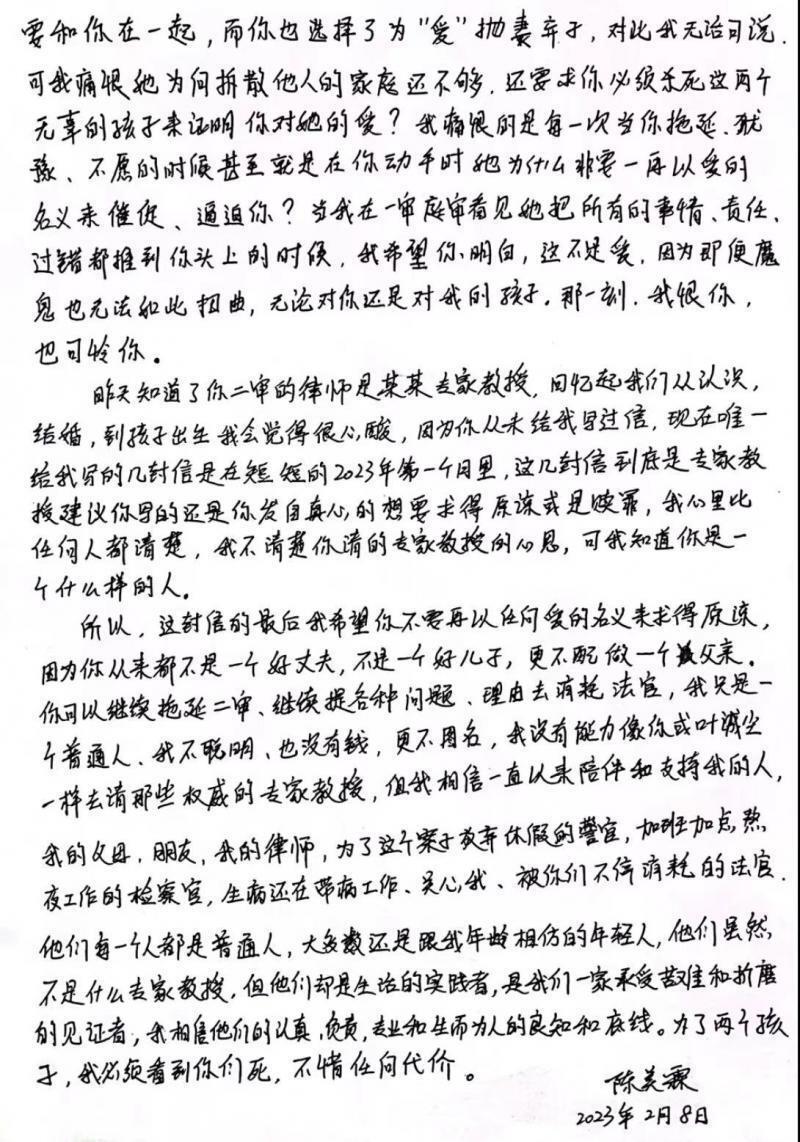 要和你在一起，而你也选择了为“爱”抛妻弃子，对此我无话可说．
可我痛恨她为何拆散他人的家庭还不够．还要求你必须杀死这两个
无辜的孩子来证明你对她的爱？我痛恨的是每一次当你拖延、犹
豫、不愿的时候甚至就是在你动手时她为什么非要一再以爱的
名义来催促、逼迫你？当我在一审庭审看见她把所有的事情、责任、
过错都推到你头上的时候，我希望你明白，这不是爱，因为即便魔
鬼也无法如此扭曲，无论对你还是对我的孩子。那一刻．我恨你，
也可怜你。
昨天知道了你二审的律师是某某专家教授，回忆起我们从认识，
结婚，到孩子出生我会觉得很心酸，因为你从未给我写过信，现在唯一
给我写的几封信是在短短的2023年第一个月里，这几封信到底是专家教
授建议你写的还是你发自真心的想要求得原谅或是赎罪，我心里比
任何人都清楚，我不清楚你请的专家教授的心思，可我知道你是一
个什么样的人。
所以，这封信的最后我希望你不要再以任何爱的名义来求得原谅，
因为你从来都不是一个好丈夫，不是一个好儿子，更不配做一个父亲。
你可以继续拖延二审、继续提各种问题、理由去消耗法官，我只是一
个普通人、我不聪明、也没有钱，更不图名，我没有能力像你或叶诚尘
一样去请那些权威的专家教授，但我相信一直以来陪伴和支持我的人，
我的父母，朋友，我的律师，为了这个案子放弃休假的警官，加班加点熬
夜工作的检察官，生病还在带病工作、关心我、被你们不停消耗的法官．
他们每一个人都是普通人，大多数还是跟我年龄相仿的年轻人，他们虽然
不是什么专家教授，但他们却是生活的实践者，是我们一家承受苦难和折磨
的见证者，我相信他们的认真，负责，专业和生而为人的良知和底线。为了两个孩
子，我必须看到你们死，不惜任何代价。
陈美霖
2023年2月8日